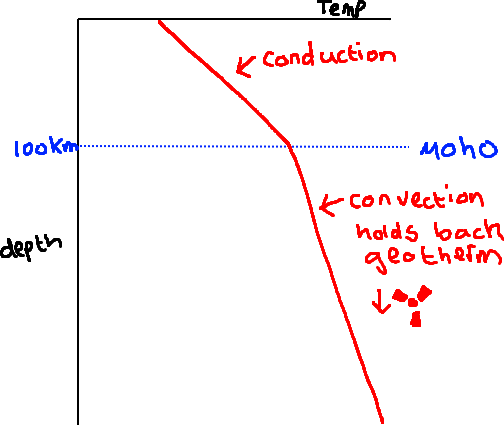 Temp
conduction
100km
MOHO
convection
holds back
geotherm
depth